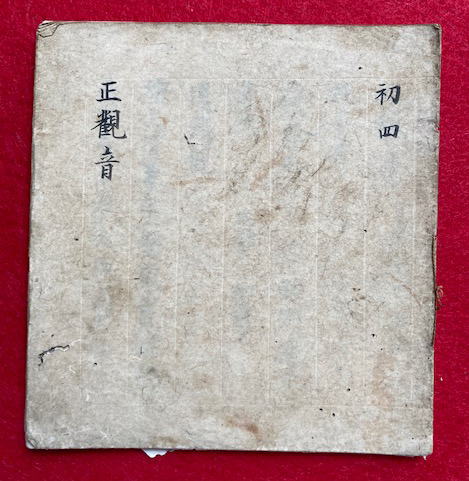 初四
正觀音